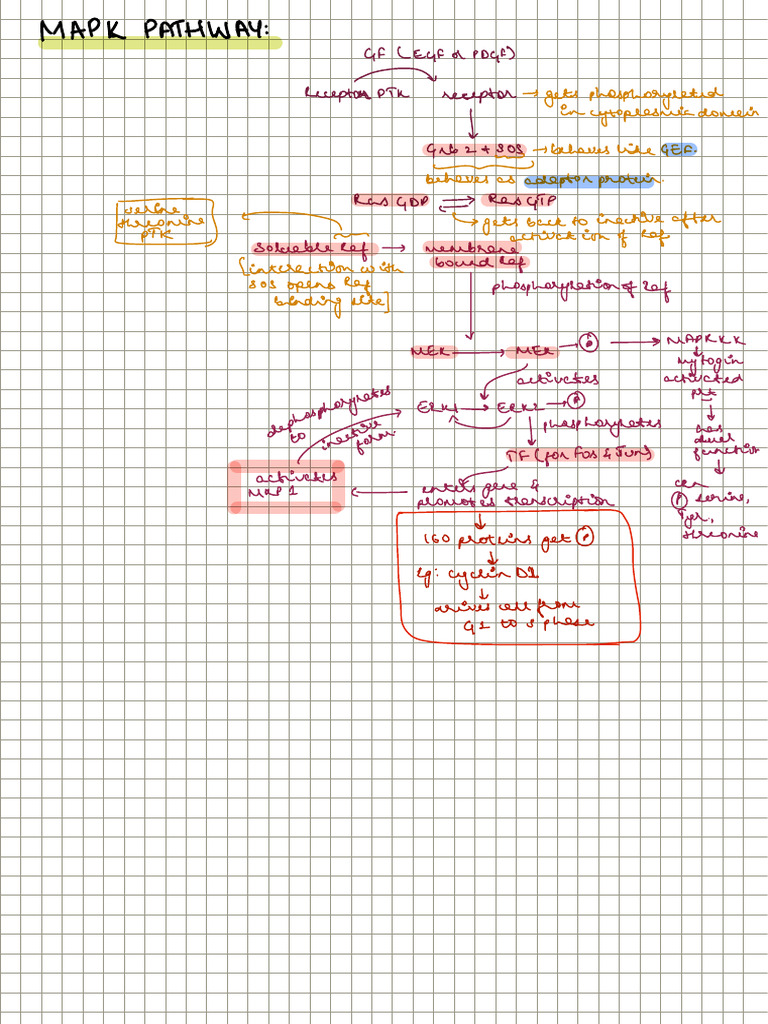 MAPK PATHWAY:
GF (EGF or PDGF)
Receptor PTK receptor → gets phosphorylated
in cytoplasmic domain
Grb 2 + SOS → behaves like GEF.
behaves as adaptor protein.
Ras GDP Ras GTP
serine
threonine
PTK
→ gets back to inactive after
activation of Raf
Soluable Raf → membrane
bound Raf
[interaction with
SOS opens Raf
binding site]
phosphorylation of Raf
MEK → MEK → P → MAPKKK
mytogin
activated
prt
activates
ERK1 → ERK2 → P
has
dual
function
dephosphorylates
to inactive
form.
phosphorylates
TF (for Fos & Jun)
activates
MKP 1
enters gene &
promotes transcription
can
P serine,
Tyr,
threonine
160 proteins get P
Eg: cyclin D1
drives cell from
G1 to S phase